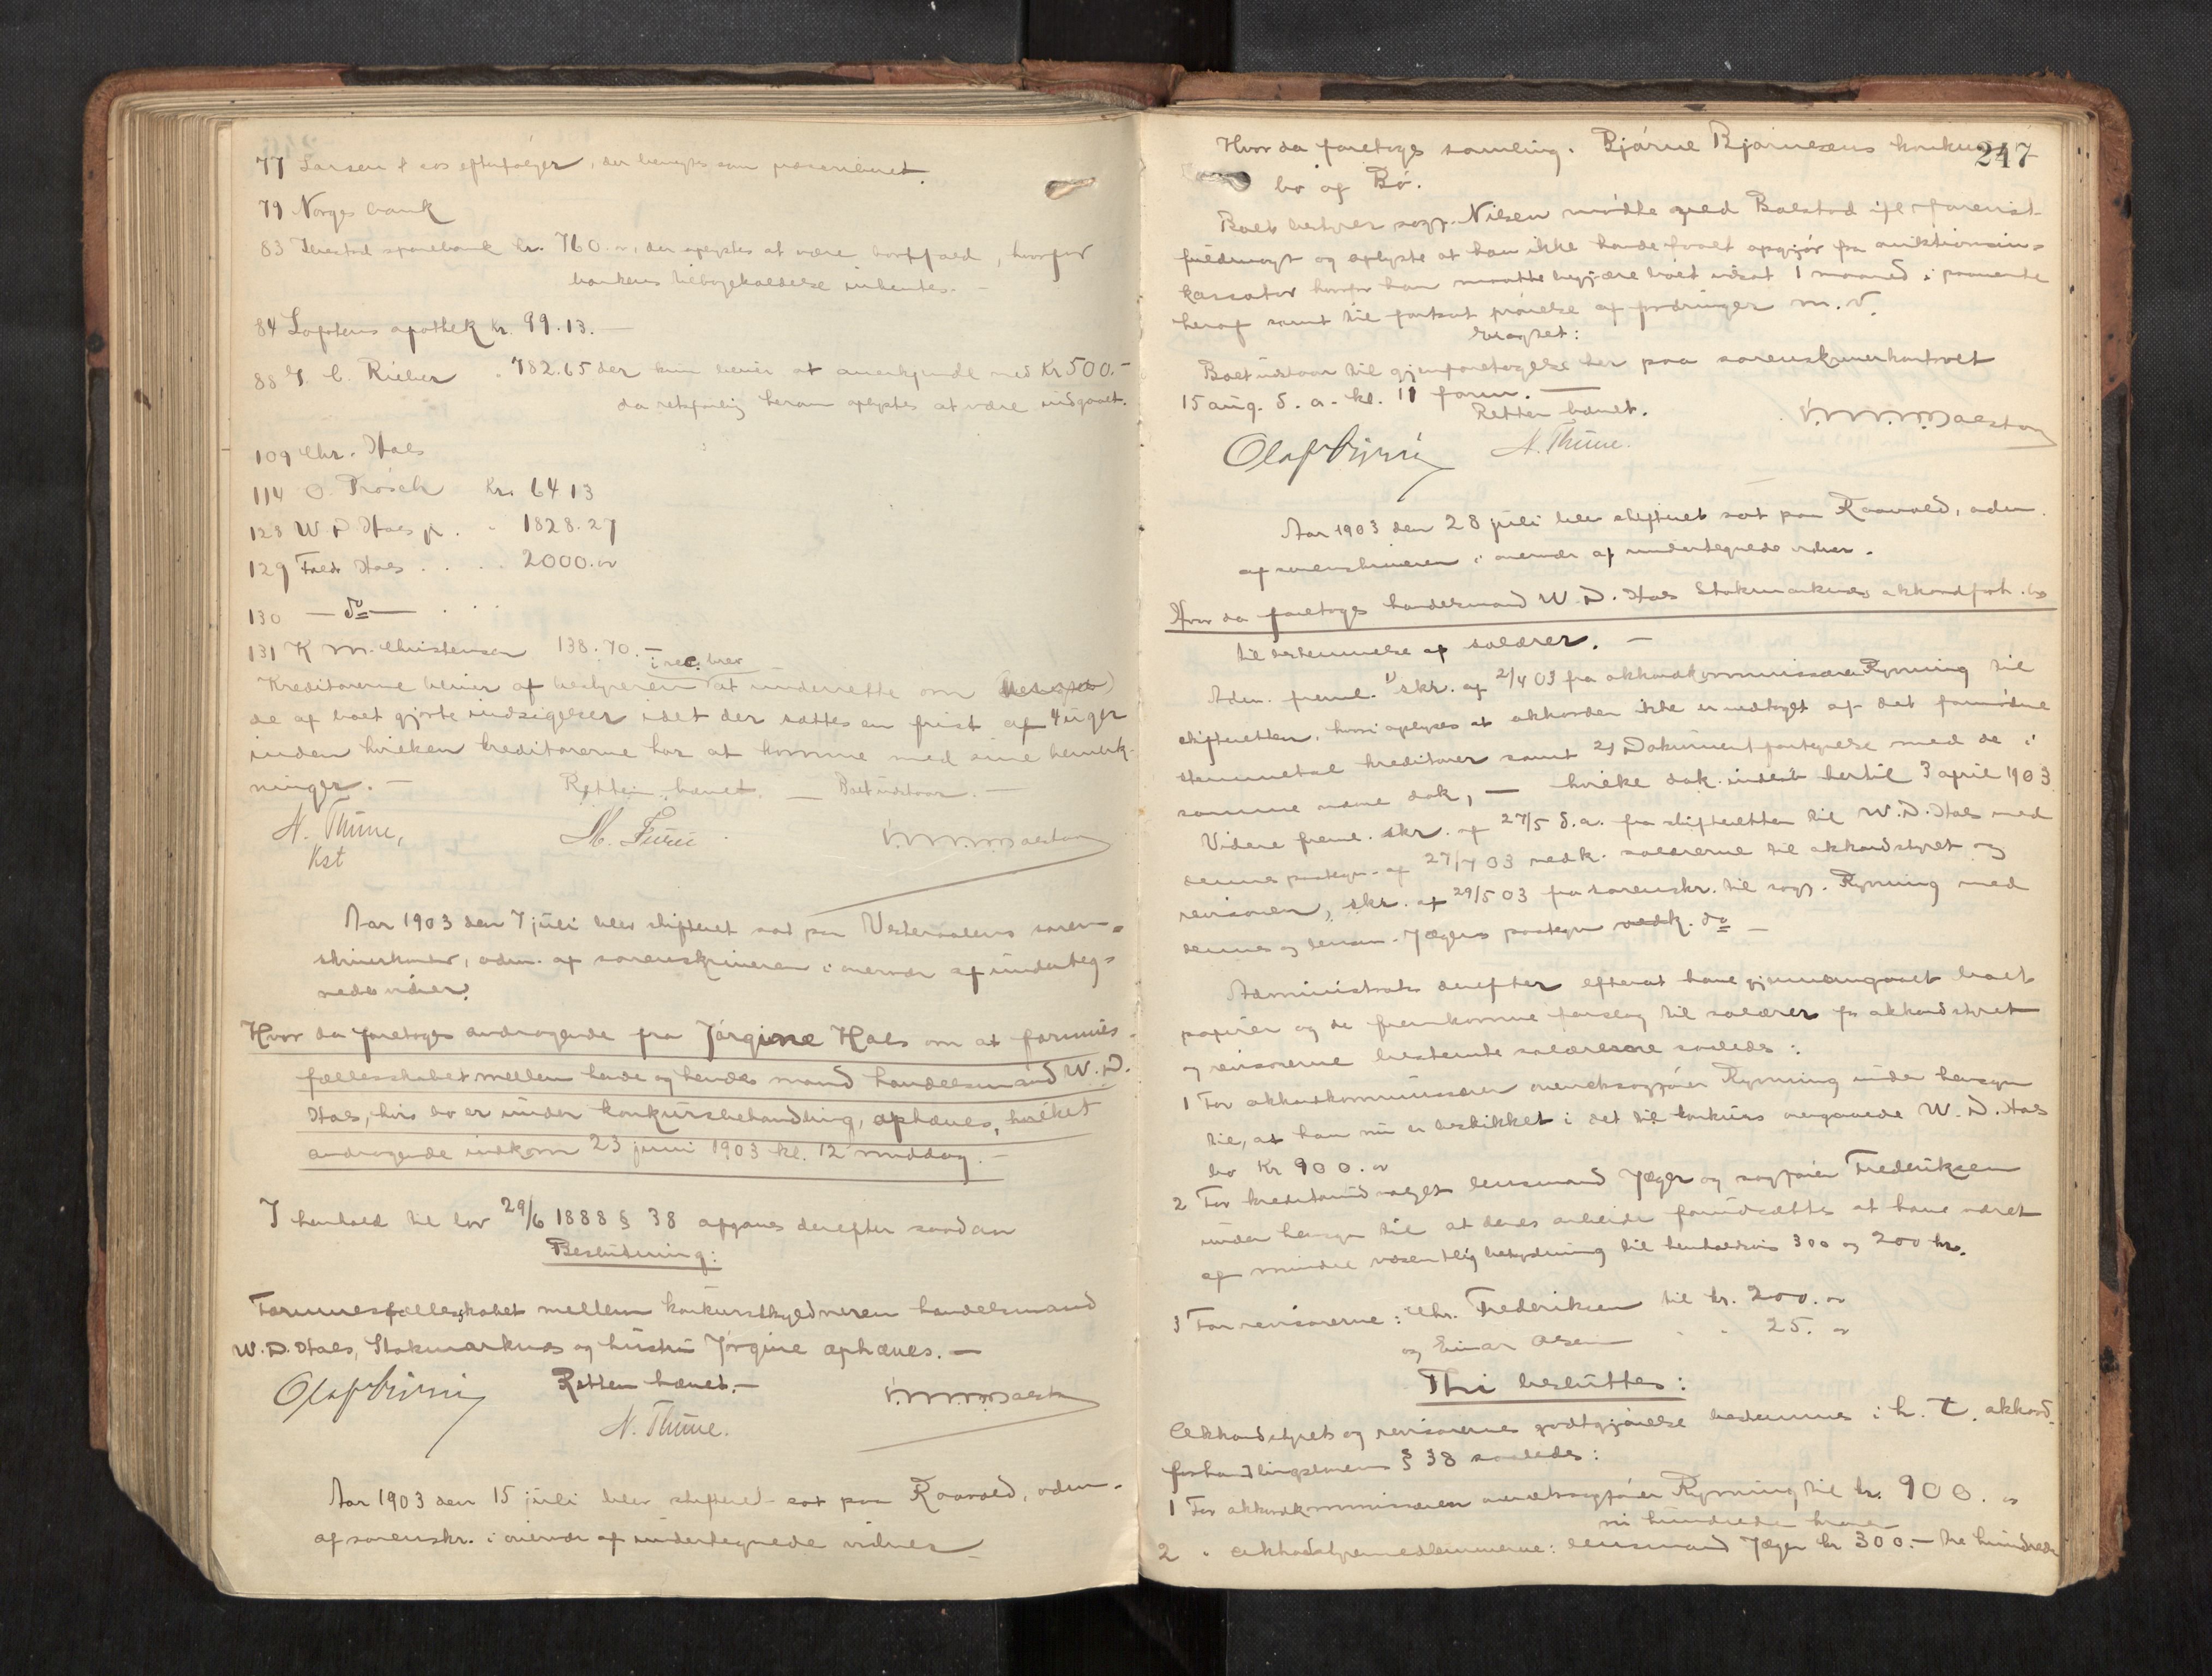 77 Larsen & søs efterfølger, der benegtes som præscriberet.
79 Norges bank
83 Ibestad sparebank kr. 760.00, der oplystes at være bortfald, hvorfor
bankens tilbagekaldelse indentes. -
84 Lofotens apothek kr. 99.13. -
88 G. C. Rieber " 782.65 der kun bliver at anerkjende med Kr 500.-
da retsforlig herom oplystes at være indgaaet.
109 Chr. Hals
114 O. Prösch Kr. 64 13
128 W. D Hals jr. " 1828.27
129 Fredr Hals . . . . 2000.00
130 — do — . . .
131 K M. Christensen 138.70. -
i rec. brev
Kreditorerne bliver af bestyreren at underrette om
de af boet gjorte indsigelser idet der sættes en frist af 4 uger
inden hvilken kreditorerne har at komme med sine bemerk-
ninger. - Retten hævet. - Boet udstaar. -
N. Thune, M. Furu V.M.M.Balstad
Kst
Aar 1903 den 7 juli blev skifteret sat paa Vesteraalens soren-
skriverkontor, adm. af sorenskriveren i overvær af underteg-
nede vidner.
Hvor da foretoges andragende fra Jørgine Hals om at formues-
fællesskabet mellem hende og hendes mand handelsmand W. D.
Hals, hvis bo er under konkursbehandling, ophæves, hvilket
andragende indkom 23 juni 1903 kl. 12 middag. -
I henhold til lov 29/6 1888 § 38 afgaves derefter saadan
Beslutning:
Formuesfællesskabet mellem konkursskyldneren handelsmand
W. D. Hals, Stokmarknes og hustru Jørgine ophæves. -
Retten hævet. -
N. Thune. V.M.M.Balstad
Aar 1903 den 15 juli blev skifteret sat paa Raavold, adm.
af sorenskr. i overvær af undertegnede vidner
247
Hvor da foretoges samling i Bjarne Bjarnesens konkurs-
bo af Bø.
Boets bestyrer sagf. Nilsen mødte ved Balstad ifl. forevist
fuldmagt og oplyste at han ikke havde faaet opgjør fra auktionsin-
kassator hvorfor han maatte begjære boet udsat 1 maaned i paavente
heraf samt til fortsat prøvelse af fordringer m. v.
Eragtet:
Boet udstaar til gjenforetagelse her paa sorenskriverkontoret
15 aug. d. a. kl. 11 form. -
Retten hævet.
N. Thune. V.M.M.Balstad
Aar 1903 den 28 juli blev skifteret sat paa Raavold, adm.
af sorenskriveren i overvær af undertegnede vidner.
Hvor da foretoges handelsmand W. D. Hals Stokmarknes akkordforh. bo
til bestemmelse af salærer. -
Adm. freml. 1) skr. af 2/4 03 fra akkordkommissær Rynning til
skifteretten, hvori oplyses at akkorden ikke er vedtaget af det fornødne
stemmetal kreditorer samt 2) Dokumentfortegnelse med de i
samme nævnte dok, - hvilke dok. indkom hertil 3 april 1903
Videre freml. skr. af 27/5 d.a. fra skifteretten til W. D. Hals med
dennes paategn. af 27/7 03 vedk. salærerne til akkordstyret og
revisoren, skr. af 29/5 03 fra sorenskr. til sagf. Rynning med
dennes og lensm. Jægers paategn vedk. do -
Administrator derefter efterat have gjennemgaaet boets
papirer og de fremkomne forslag til salærer for akkordstyret
og revisorerne bestemte salærerne saaledes:
1 For akkordkommissæren overretssagfører Rynning under hensyn
til, at han nu er beskikket i det til konkurs overgaaede W. D. Hals
bo Kr 900.00
2 For kreditorudvalget lensmand Jæger og sagfører Frederiksen
under hensyn til at deres arbeide forudsættes at have været
af mindre væsentlig betydning til henholdsvis 300 og 200 kr.
3 For revisorerne: Chr. Frederiksen til kr. 200.00
og Einar Olsen " " 25.00
Thi besluttes:
Akkordstyrets og revisorernes godtgjørelse bestemmes i h. t. akkord-
forhandlingslovens § 38 saaledes:
1 For akkordkommissæren overretssagfører Rynning til kr. 900.00
ni hundrede kroner
2 " akkordstyremedlemmerne: lensmand Jæger kr 300.- tre hundrede